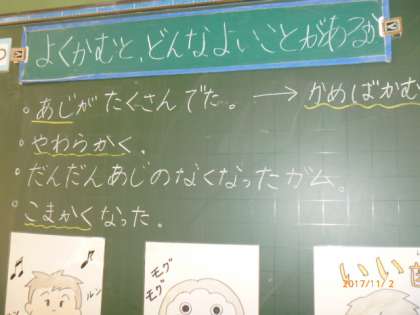 よくかむと、どんなよいことがあるか
・あじがたくさんでた。→かめばかむ
・やわらかく、
・だんだんあじのなくなったガム。
・こまかくなった。
ルン
モグ
モグ
いい歯
2017/11/2